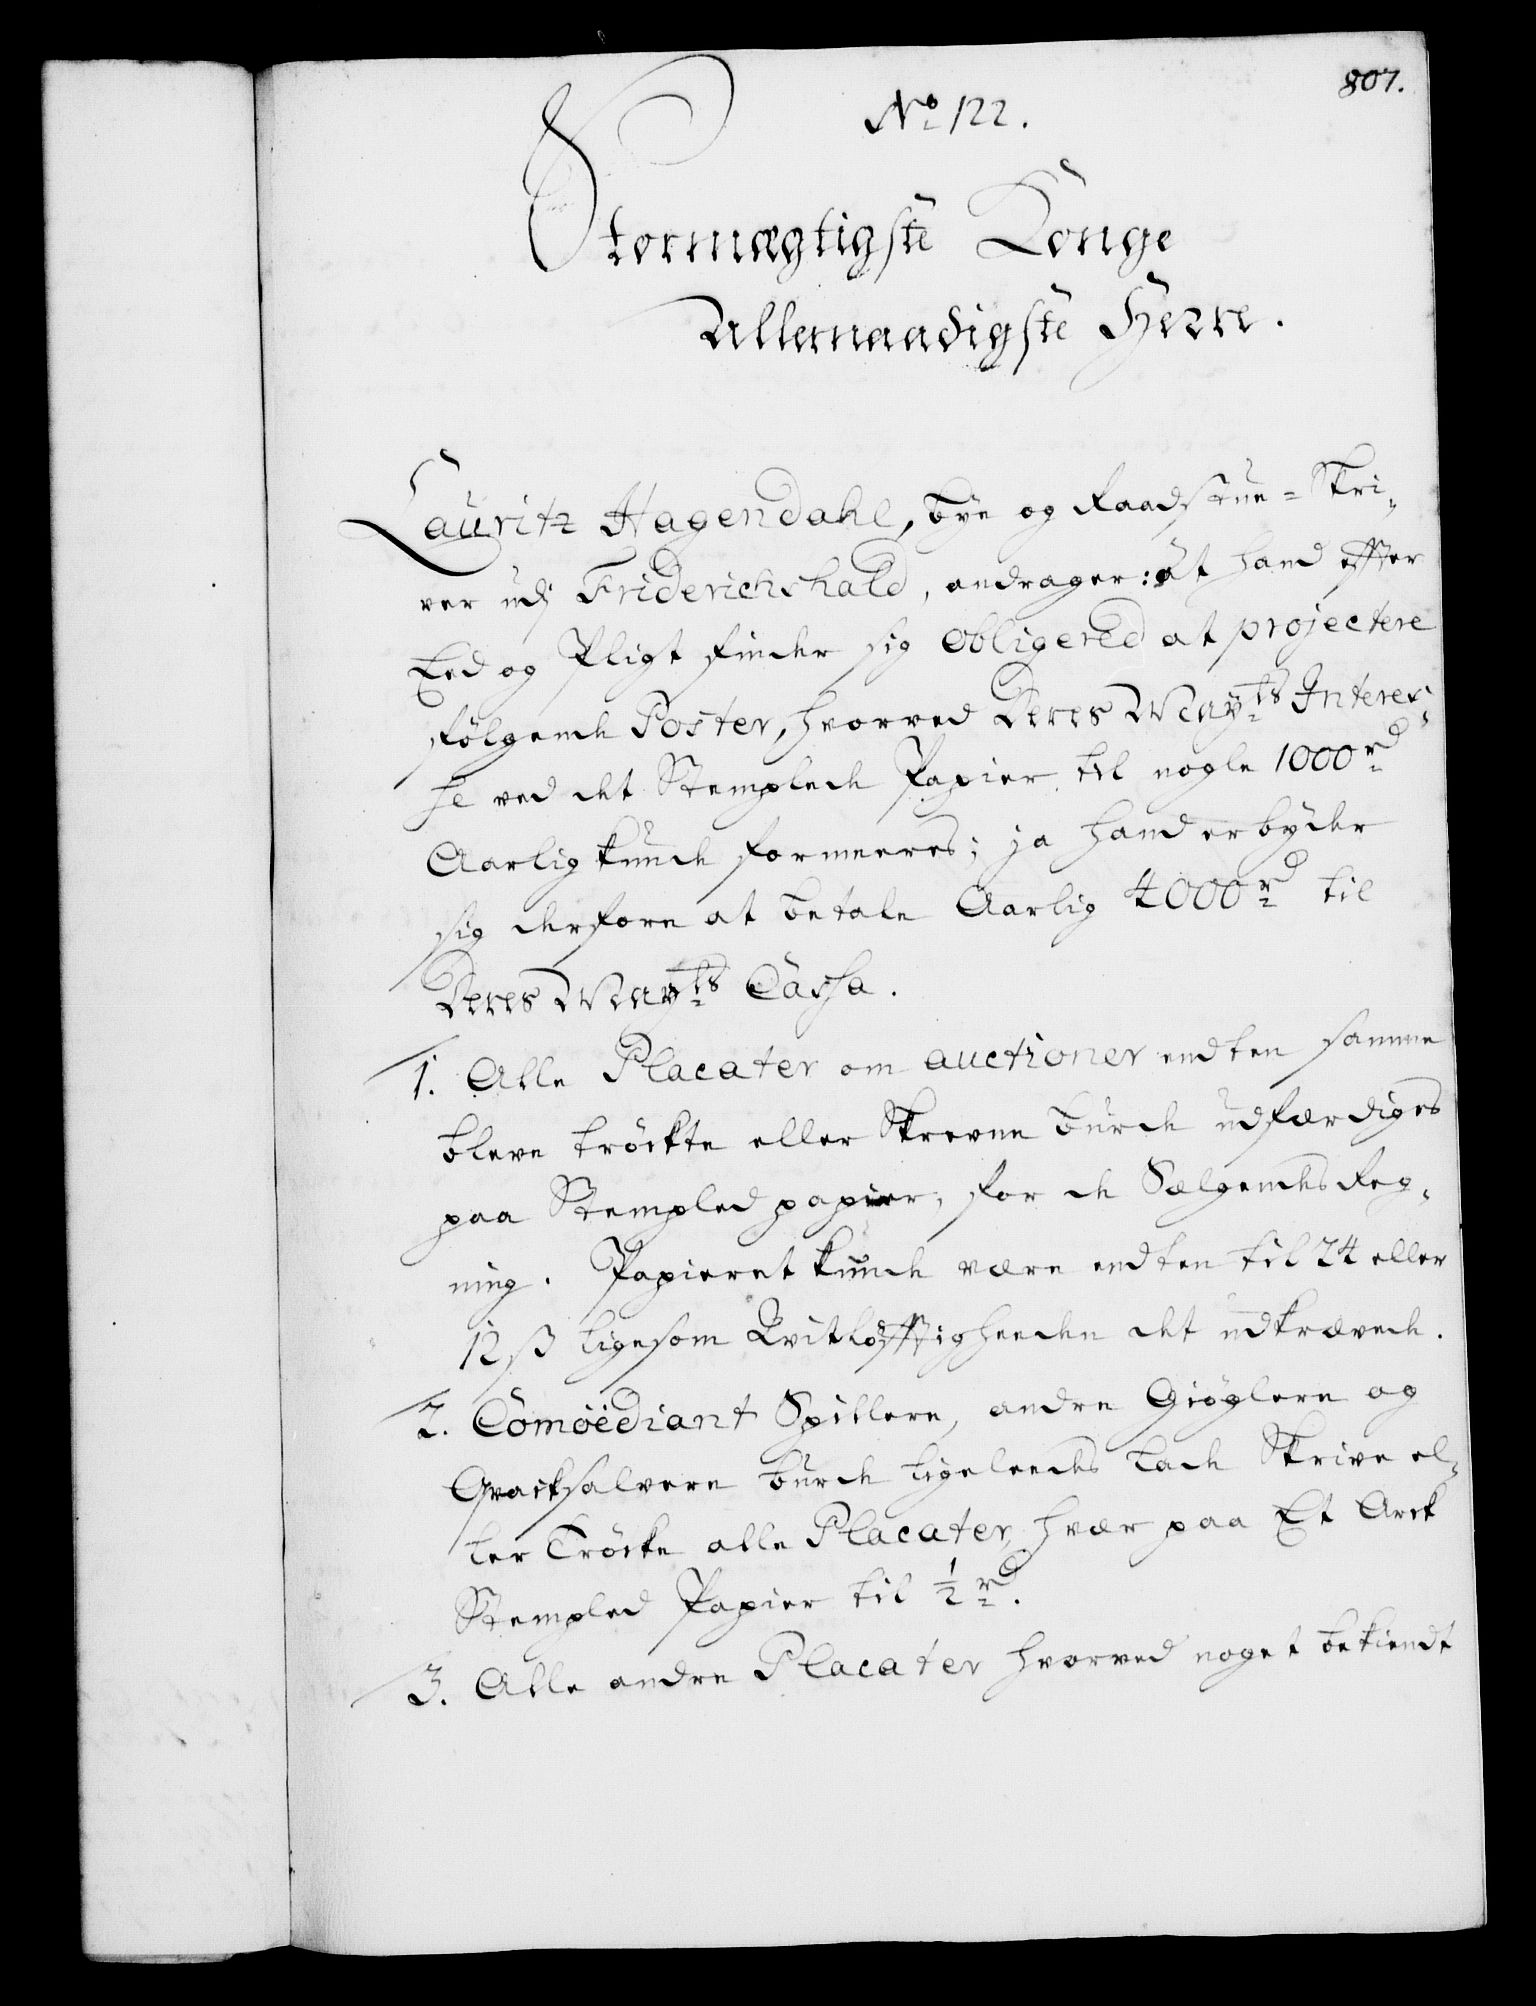 807.
No 122.
Stormægtigste Konge
Allernaadigste Herre.
Lauritz Hagendahl, bye og Raadstue-Skri-
ver udj Friderichshald, andrager: at hand effter
Eed og Pligt finder sig obligered at projectere
følgende Poster, hvorved Deres Mayts Interes-
se ved det Stemplede Papier til nogle 1000 rd
Aarlig kunde formeeres; ja hand erbyder
sig derfore at betale Aarlig 4000 rd til
Deres Mayts Cassa.
1. Alle Placater om auctioner endten samme
bleve tröckte eller Skrevne burde udfærdiges
paa Stempled papier, for de Sælgendes Reg-
ning. Papieret kunde være endten til 24 eller
12 ß ligesom Vitløfftigheeden det udkrævede.
2. Comoediant Spillere, andre Giøglere og
Qvacksalvere burde ligeleedes lade Skrive el-
ler Tröcke alle Placater, hvær paa Et Arck
Stempled Papier til ½ rd.
3. Alle andre Placater hvorved noget bekiendt